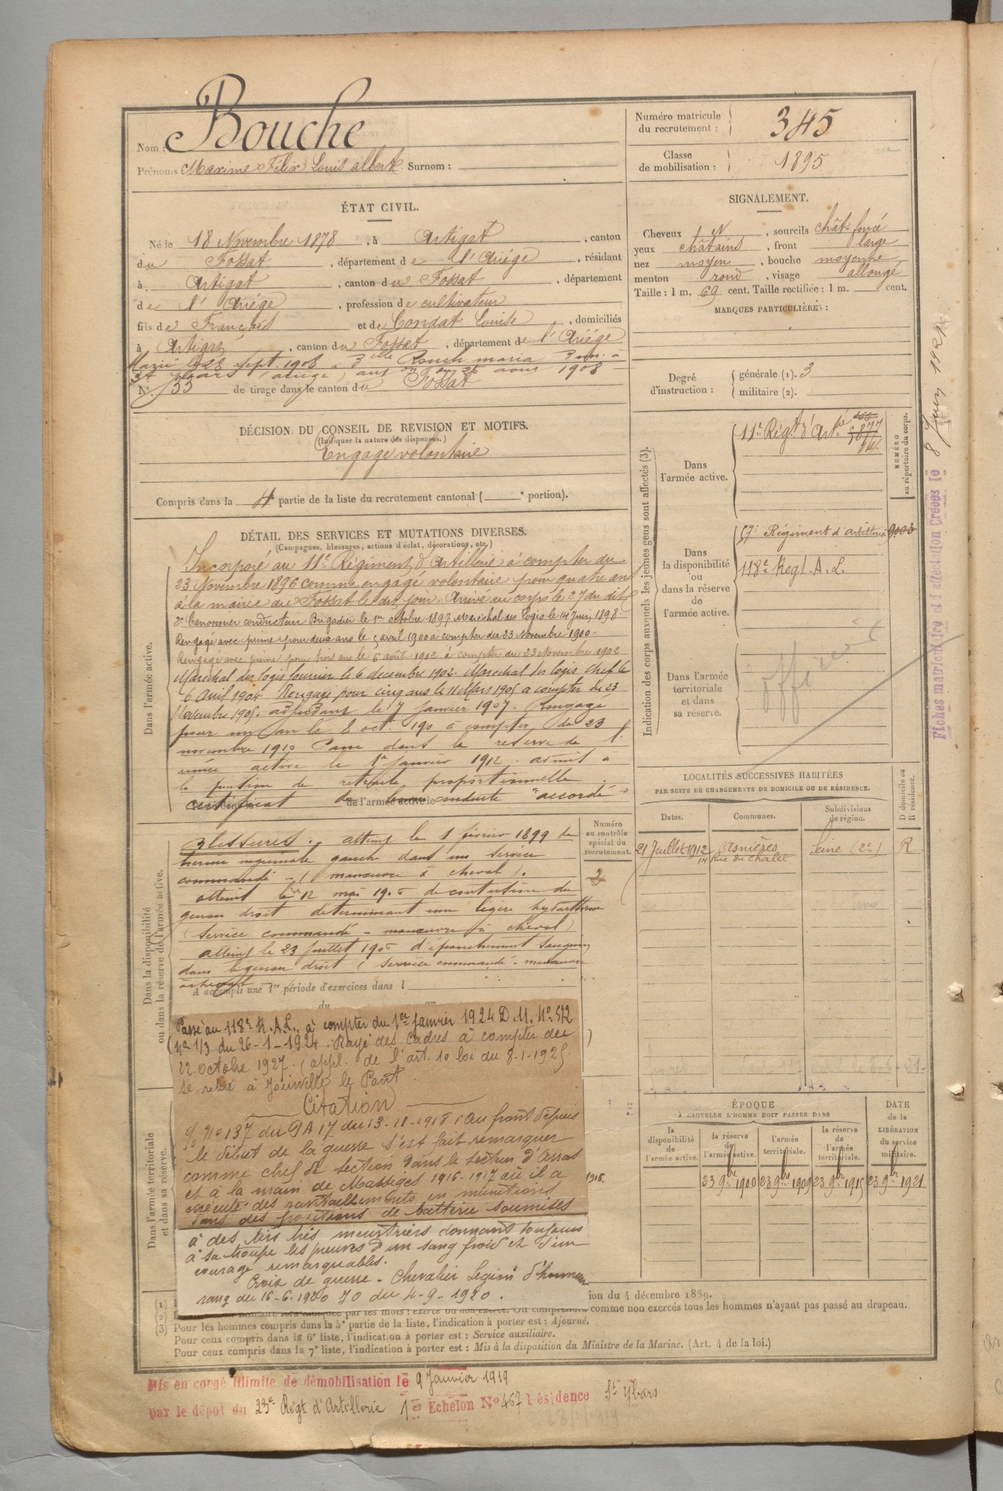 Nom : Bouche
Prénoms Maxime Félix Louis Albert Surnom :
ÉTAT CIVIL.
Né le 18 Novembre 1878, à Artigat, canton
du Fossat, département de l'Ariège, résidant
à Artigat, canton du Fossat, département
de l'Ariège, profession de cultivateur
fils de François et de Condat Louise, domiciliés
à Artigat, canton du Fossat, département de l'Ariège
Marié le 28 Sept. 1908 à Maria
août 1908
N° 33 de tirage dans le canton du Fossat
DÉCISION DU CONSEIL DE REVISION ET MOTIFS.
(Indiquer la nature des dispenses.)
Engagé volontaire
Compris dans la 4e partie de la liste du recrutement cantonal ( e portion).
DÉTAIL DES SERVICES ET MUTATIONS DIVERSES.
(Campagnes, blessures, actions d'éclat, décorations, etc.)
Dans l'armée active.
Incorporé au 11e Régiment d'Artillerie à compter du
23 Novembre 1896 comme engagé volontaire pour quatre ans
à la mairie du Fossat le dit jour. Arrivé au corps le 27 du dit
2e canonnier conducteur Brigadier le 1er octobre 1897 Maréchal des Logis le 14 Juin 1898
Rengagé avec prime pour deux ans le 5 avril 1900 à compter du 23 Novembre 1900
Rengagé avec prime pour trois ans le 6 août 1902 à compter du 23 Novembre 1902
Maréchal des logis fourrier le 6 décembre 1902. Maréchal des logis chef le
6 Avril 1904 Rengagé pour cinq ans le 11 Mars 1905 à compter du 23
Novembre 1905. adjudant le 7 janvier 1907. Rengagé
pour un an le 8 oct. 190 à compter du 23
novembre 1910 Passé dans la réserve de l'
armée active le 1er Janvier 1912 admis à
la pension de retraite proportionnelle
certificat de bonne conduite "accordé"
Dans la disponibilité
ou dans la réserve de l'armée active.
Blessures : atteint le 1 février 1899 de
hernie inguinale gauche dans un service
commandé (manœuvre à cheval).
atteint le 12 mai 1905 de contusion du
genou droit déterminant une légère hydarthrose
(service commandé - manœuvre à cheval)
atteint le 23 juillet 1905 d'épanchement sanguin
dans le genou droit (service commandé - manœuvre
à cheval)
A accompli une 1re période d'exercices dans l
Numéro
au contrôle
spécial du
recrutement.
2
Passé au 118e R.A.L. à compter du 1er Janvier 1924 D.M. No 512
No 1/3 du 26-1-1924. Rayé des Cadres à compter du
22 octobre 1927. (appl. de l'art. 10 loi du 8-1-1925.
Se retire à Joinville le Pont
Citation
O. No 137 du GA 17 du 13-11-1918 (Au front depuis
le début de la guerre s'est fait remarquer
comme chef de section dans le secteur d'Arras
et à la main de Massiges 1916-1917 où il a
exécuté des ravitaillements en munitions
dans des positions de batterie soumises
à des tirs très meurtriers donnant toujours
à sa troupe les preuves d'un sang froid et d'un
courage remarquables.
Croix de guerre. Chevalier Légion d'honneur
rang du 16-6-1920 JO du 4-9-1920.
Dans l'armée territoriale
et dans sa réserve.
Numéro matricule
du recrutement : 345
Classe
de mobilisation : 1895
SIGNALEMENT.
Cheveux N, sourcils chât. foncé
yeux châtains, front large
nez moyen, bouche moyenne
menton rond, visage allongé
Taille : 1 m. 69 cent. Taille rectifiée : 1 m. cent.
MARQUES PARTICULIÈRES :
Degré
d'instruction :
générale (1). 3
militaire (2).
Indication des corps auxquels les jeunes gens sont affectés (3).
NUMÉRO
au répertoire du corps.
Dans
l'armée active.
11e Régt d'Artie
Dans
la disponibilité
ou
dans la réserve
de
l'armée active.
57e Régiment d'artillerie
118e Regt. A. L.
Dans l'armée
territoriale
et dans
sa réserve.
Officier
Fiches matricules et d'allocation Créées le 8 Juin
LOCALITÉS SUCCESSIVES HABITÉES
PAR SUITE DE CHANGEMENTS DE DOMICILE OU DE RÉSIDENCE.
Dates. Communes. Subdivisions
de région. D domicile ou
R résidence.
21 Juillet 1912 Asnières Seine (2e) R
14 Rue du Chalet
ÉPOQUE
À LAQUELLE L'HOMME DOIT PASSER DANS
DATE
de la
LIBÉRATION
du service
militaire.
la
disponibilité
de
l'armée active.
la réserve
de
l'armée active.
l'armée
territoriale.
la réserve
de
l'armée
territoriale.
23 9bre 1900 23 9bre 1909 23 9bre 1915 23 9bre 1921
ion du 4 décembre 1889.
comme non exercés tous les hommes n'ayant pas passé au drapeau.
(3) Pour les hommes compris dans la 5e partie de la liste, l'indication à porter est : Ajourné.
Pour ceux compris dans la 6e liste, l'indication à porter est : Service auxiliaire.
Pour ceux compris dans la 7e liste, l'indication à porter est : Mis à la disposition du Ministre de la Marine. (Art. 4 de la loi.)
Mis en congé illimité de démobilisation le 9 Janvier 1919
par le dépôt du 23e Régt d'Artillerie 1er Echelon No 467 Résidence St Ybars